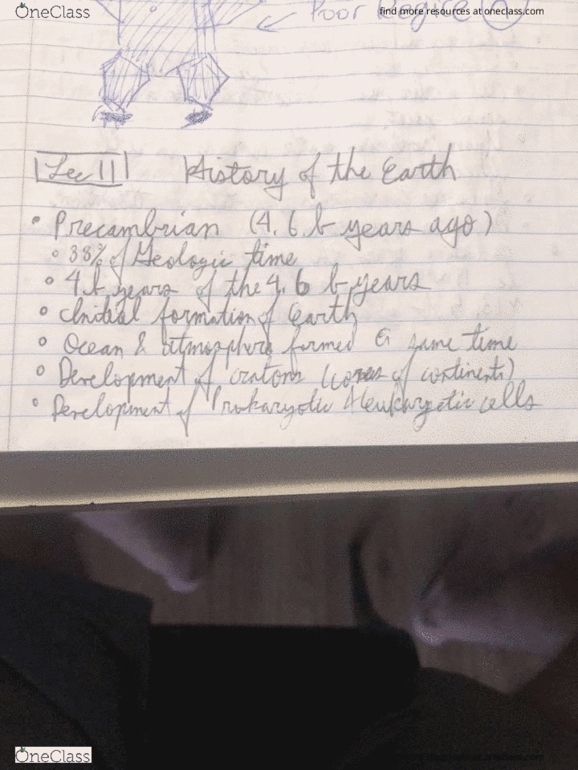 OneClass
find more resources at oneclass.com
Poor
Lec 11 History of the Earth
• Precambrian (4.6 b years ago)
∘ 38% of Geologic time
∘ 4 b years of the 4.6 b years
∘ Initial formation of Earth
∘ Ocean & atmosphere formed @ same time
∘ Development of cratons (cores of continents)
∘ Development of Prokaryotic & eukaryotic cells
OneClass